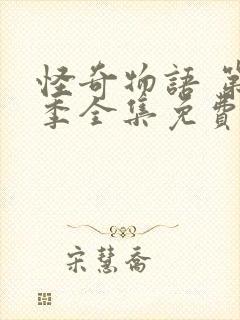 怪奇物語 第
季全集免費
宋慧喬